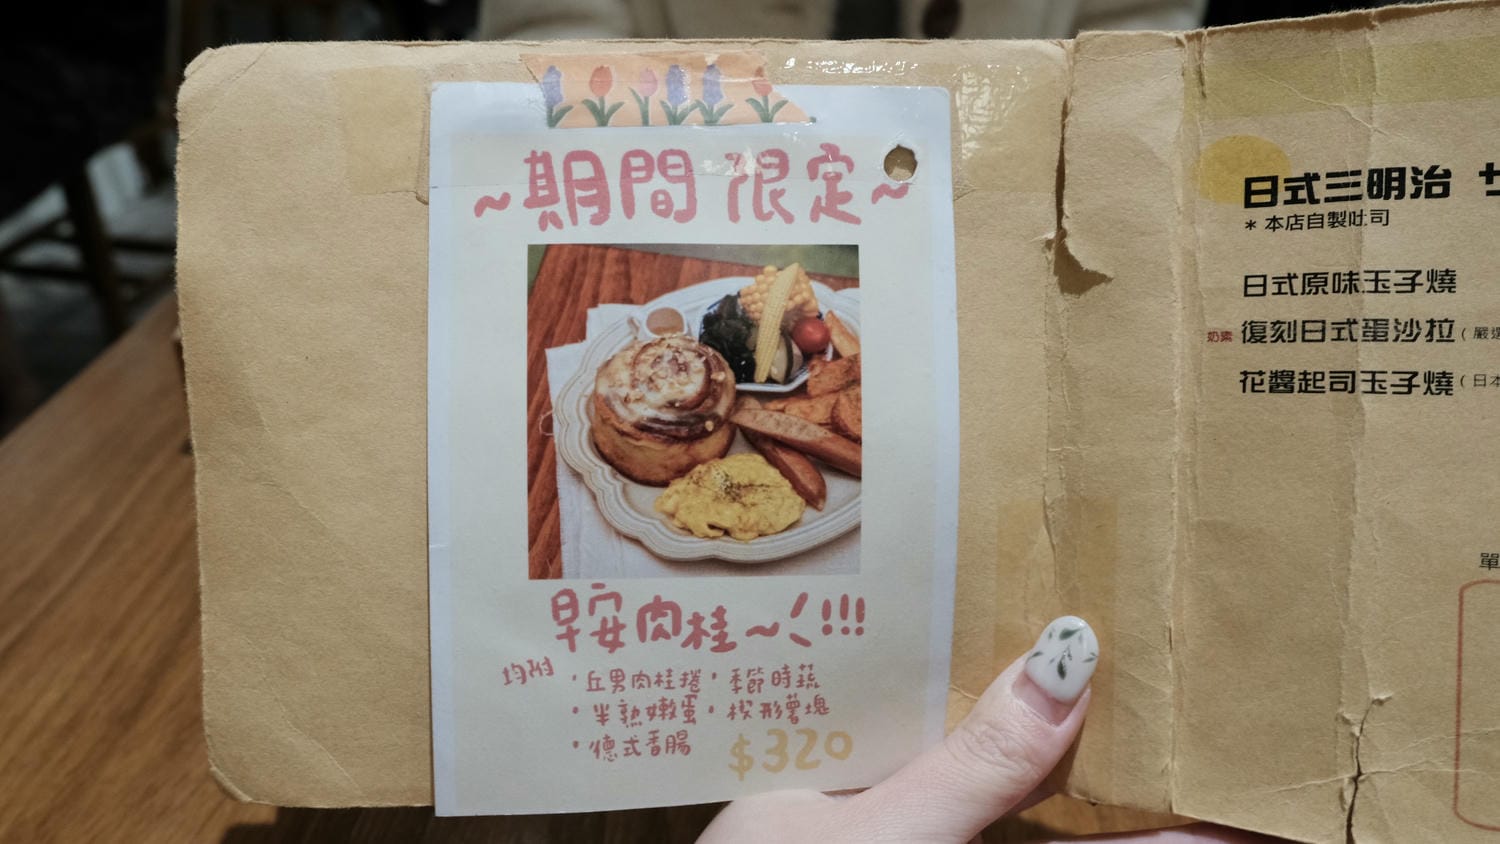 ~期間限定~
早安肉桂~!!!
均附
・丘男肉桂捲・季節時蔬
・半熟嫩蛋・楔形薯塊
・德式香腸
$320
日式三明治
* 本店自製吐司
日式原味玉子燒
奶素 復刻日式蛋沙拉(嚴選
花醬起司玉子燒(日本
單